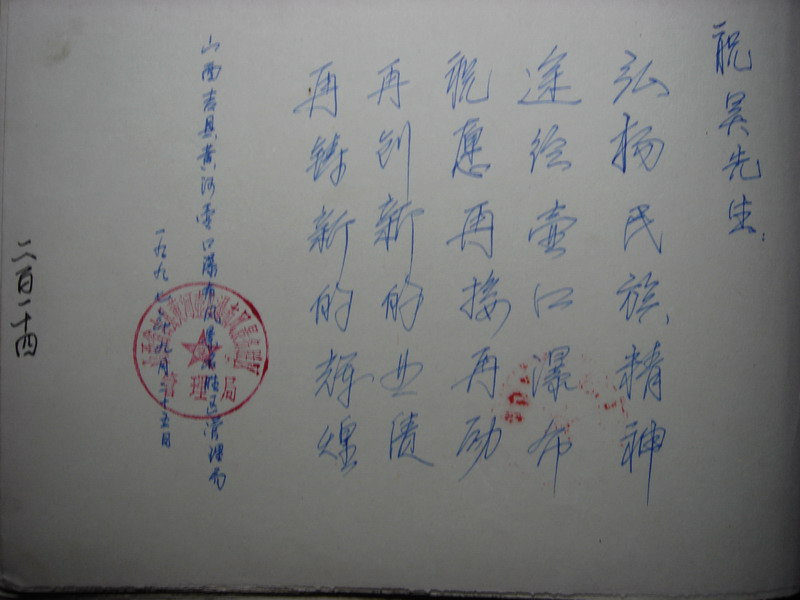 祝吴先生:
弘扬民族精神
途经壶口瀑布
祝愿再接再励
再创新的业绩
再铸新的辉煌
山西吉县黄河壶口瀑布风景名胜区管理局
一九九七年九月二十五日
管理局
二百十四